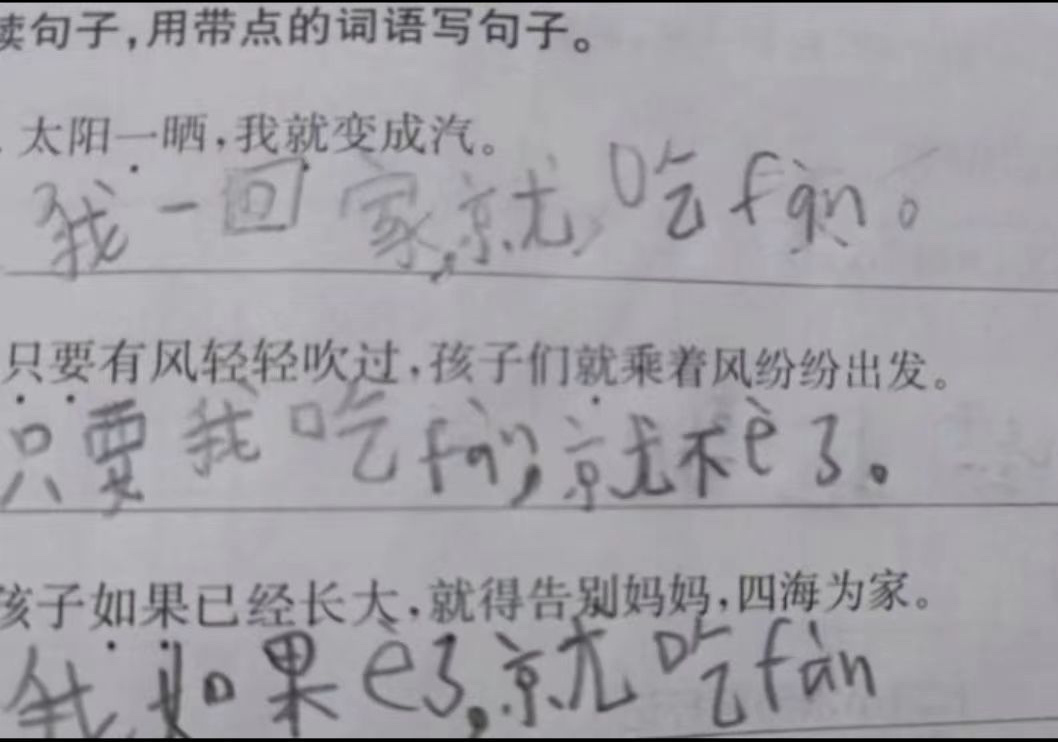 读句子,用带点的词语写句子。
太阳一晒,我就变成汽。
我一回家,就吃fàn。
只要有风轻轻吹过,孩子们就乘着风纷纷出发。
只要我吃fàn,就不è了。
孩子如果已经长大,就得告别妈妈,四海为家。
我如果è了,就吃fàn